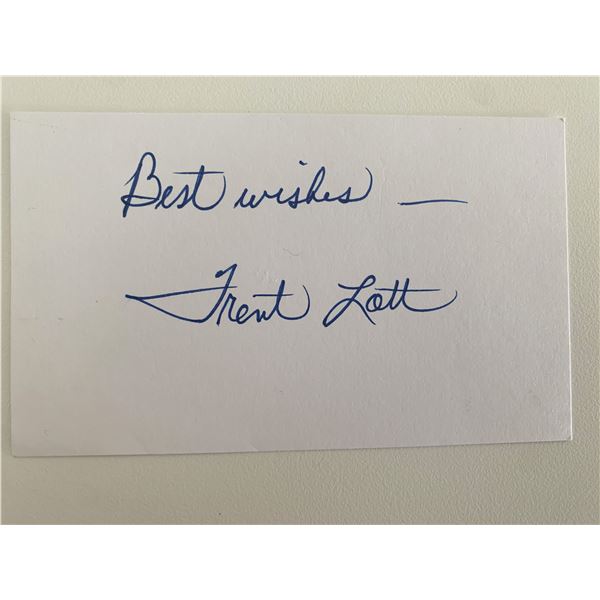 Best wishes —
Trent Lott